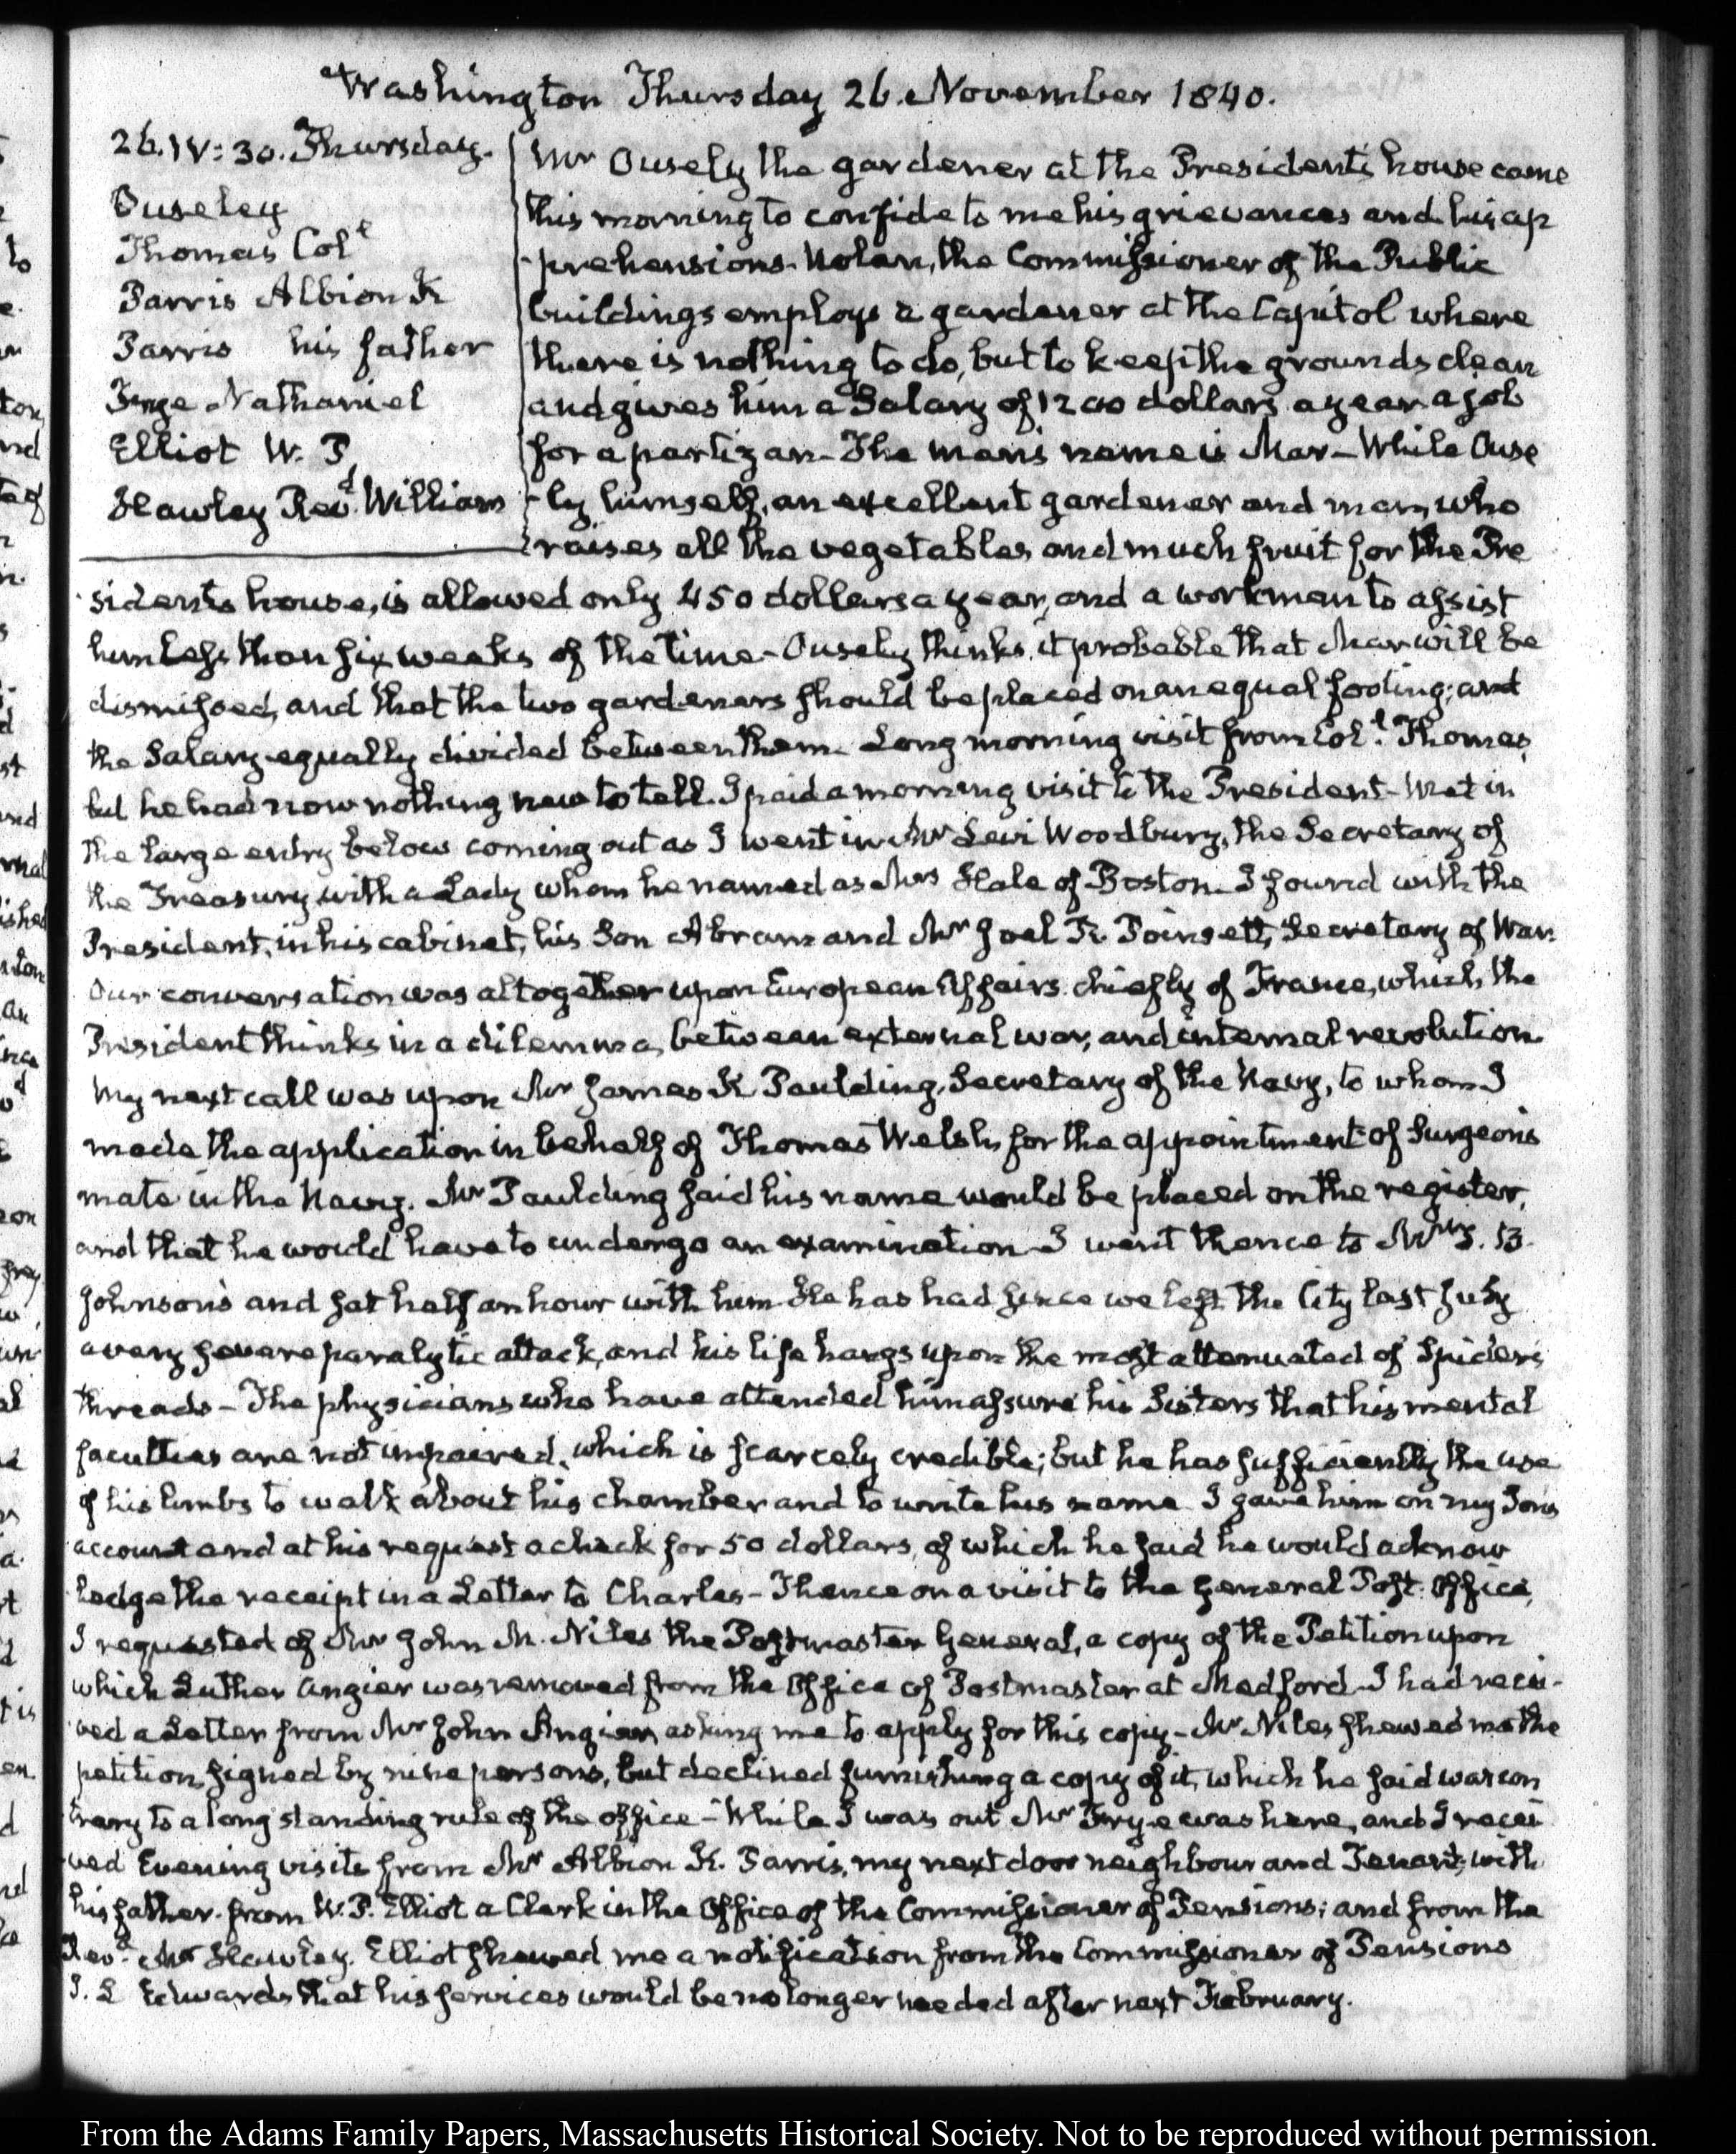 Washington Thursday 26. November 1840.
26. IV:30. Thursday.
Ouseley
Thomas Col.l
Parris Albion K
Parris his father
Frye Nathaniel
Elliot W. P
Hawley Rev.d William
Mr Ousely the gardener at the President's house came
this morning to confide to me his grievances and his ap
-prehensions. Nolan, the Commissioner of the Public
buildings employs a gardener at the Capitol where
there is nothing to do, but to keep the grounds clean
and gives him a Salary of 1200 dollars a year a job
for a partizan- The man's name is Mar- While Ouse
-ly himself, an excellent gardener and man, who
raises all the vegetables, and much fruit for the Pre
-sident's house, is allowed only 450 dollars a year, and a workman to assist
him less than six weeks of the time- Ousely thinks it probable that Mar will be
dismissed, and that the two gardeners should be placed on an equal footing; and
the Salary equally divided between them. Long morning visit from Col.l Thomas,
but he had now nothing new to tell. I paid a morning visit to the President- Met in
the large entry below coming out as I went in Mr Levi Woodbury, the Secretary of
the Treasury with a Lady whom he named as Mrs Hale of Boston. I found with the
President, in his cabinet, his Son Abram and Mr Joel R. Poinsett, Secretary of War.
Our conversation was altogether upon European Affairs chiefly of France, which the
President thinks in a dilemma, between external war, and internal revolution.
My next call was upon Mr James K Paulding, Secretary of the Navy, to whom I
made the application in behalf of Thomas Welsh, for the appointment of Surgeons
mate in the Navy. Mr Paulding said his name would be placed on the register,
and that he would have to undergo an examination I went thence to Mr T. B.
Johnson's and sat half an hour with him. He has had since we left the City last July
a very severe paralytic attack, and his life hangs upon the most attenuated of Spider's
threads- The physicians who have attended him assure his Sisters that his mental
faculties are not impaired, which is scarcely credible; but he has sufficiently the use
of his limbs to walk about his chamber and to write his name. I gave him on my Son's
account and at his request a check for 50 dollars, of which he said he would acknow
-ledge the receipt in a Letter to Charles- Thence on a visit to the General Post Office,
I requested of Mr John M. Niles the Postmaster General, a copy of the Petition upon
which Luther Angier was removed from the Office of Postmaster at Medford. I had recei-
-ved a Letter from Mr John Angier asking me to apply for this copy- Mr Niles shewed me the
petition, signed by nine persons, but declined furnishing a copy of it, which he said was con
-trary to a long standing rule of the office- While I was out Mr Frye was here, and I recei
-ved Evening visits from Mr Albion K. Parris, my next door neighbour and Tenant, with
his father- from W. P. Elliot a Clerk in the Office of the Commissioner of Pensions; and from the
Rev.d Mr Hawley. Elliot shewed me a notification from the Commissioner of Pensions
J. L Edwards that his services would be no longer needed after next February.
From the Adams Family Papers, Massachusetts Historical Society. Not to be reproduced without permission.